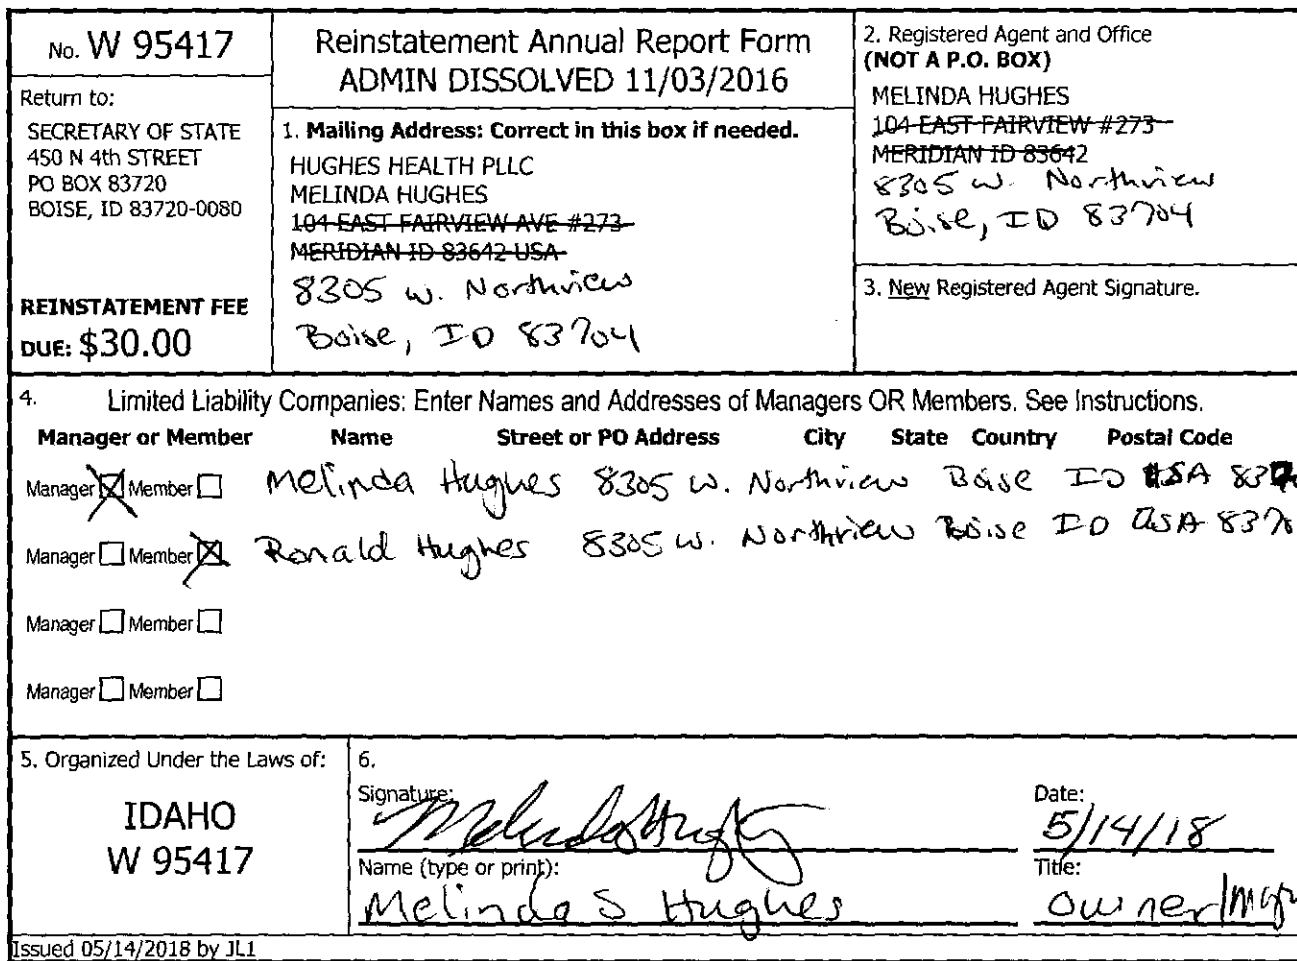 No. W 95417
Return to:
SECRETARY OF STATE
450 N 4th STREET
PO BOX 83720
BOISE, ID 83720-0080
REINSTATEMENT FEE
DUE: $30.00
Reinstatement Annual Report Form
ADMIN DISSOLVED 11/03/2016
1. Mailing Address: Correct in this box if needed.
HUGHES HEALTH PLLC
MELINDA HUGHES
104 EAST FAIRVIEW AVE #273
MERIDIAN ID 83642 USA
8305 W. Northview
Boise, ID 83704
2. Registered Agent and Office
(NOT A P.O. BOX)
MELINDA HUGHES
104 EAST FAIRVIEW #273
MERIDIAN ID 83642
8305 W. Northview
Boise, ID 83704
3. New Registered Agent Signature.
4. Limited Liability Companies: Enter Names and Addresses of Managers OR Members. See Instructions.
Manager or Member Name Street or PO Address City State Country Postal Code
Manager Member Melinda Hughes 8305 W. Northview Boise ID USA
Manager Member Ronald Hughes 8305 W. Northview Boise ID USA 8370
Manager Member
Manager Member
5. Organized Under the Laws of:
IDAHO
W 95417
6.
Signature: Melinda Hughes
Date: 5/14/18
Name (type or print): Melinda S Hughes
Title: owner/Mgr
Issued 05/14/2018 by JL1